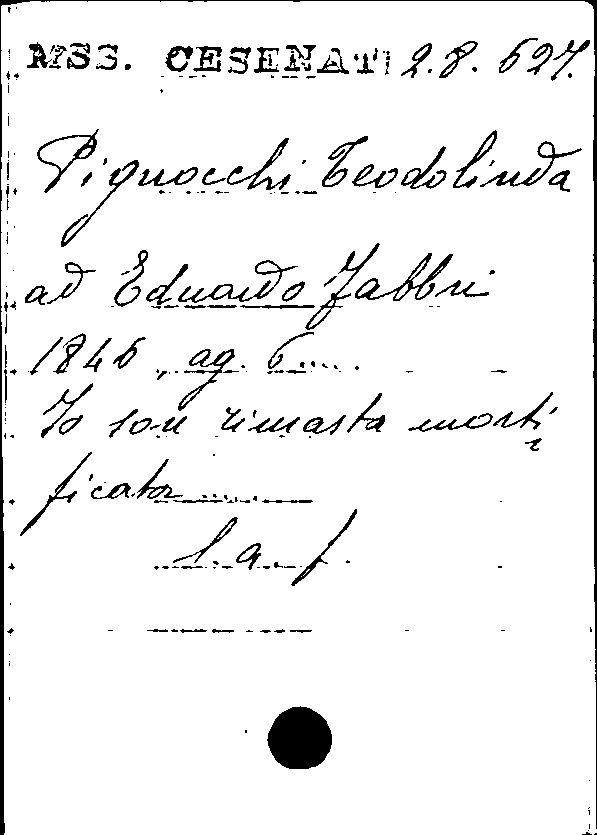 MSS. CESENATI 2.8.627.
Pignocchi Teodolinda
ad Eduardo Fabbri
1846, ag. 6....
Io son rimasta morti
ficata......
l. a. f.